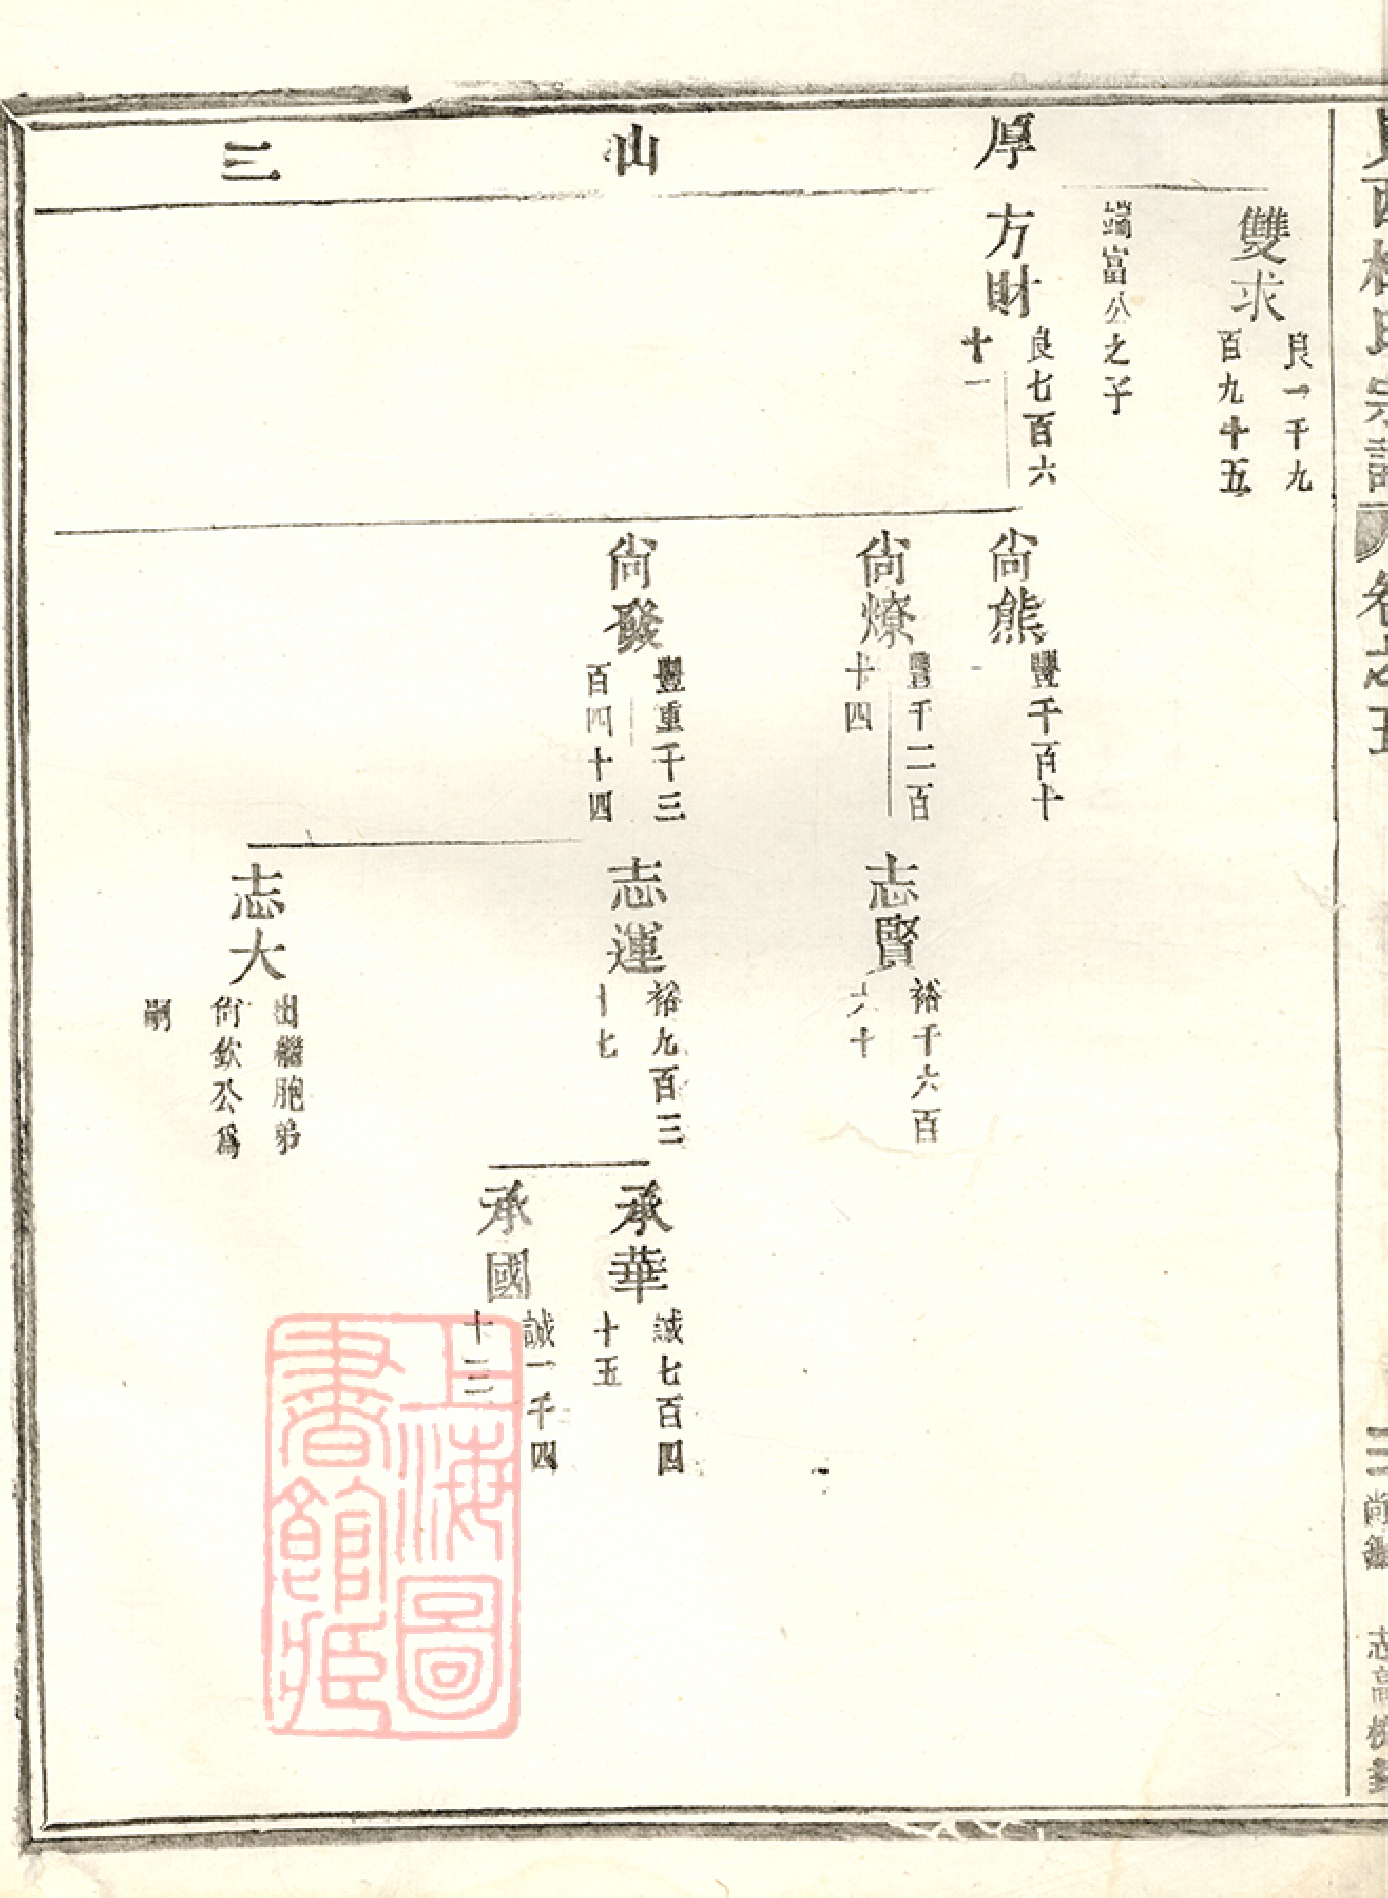 厚
山
三
雙求
良一千九
百九十五
端富公之子
方財
良七百六
十一
尙熊
豐千百十
一
尙燎
豐千二百
十四
尙發
豐重千三
百四十四
志賢
裕千六百
六十
志運
裕九百三
十七
志大
出繼胞弟
尙欽公爲
嗣
承華
誠七百四
十五
承國
誠一千四
十三
上海圖
書館藏
宗譜
卷之五
三
志高